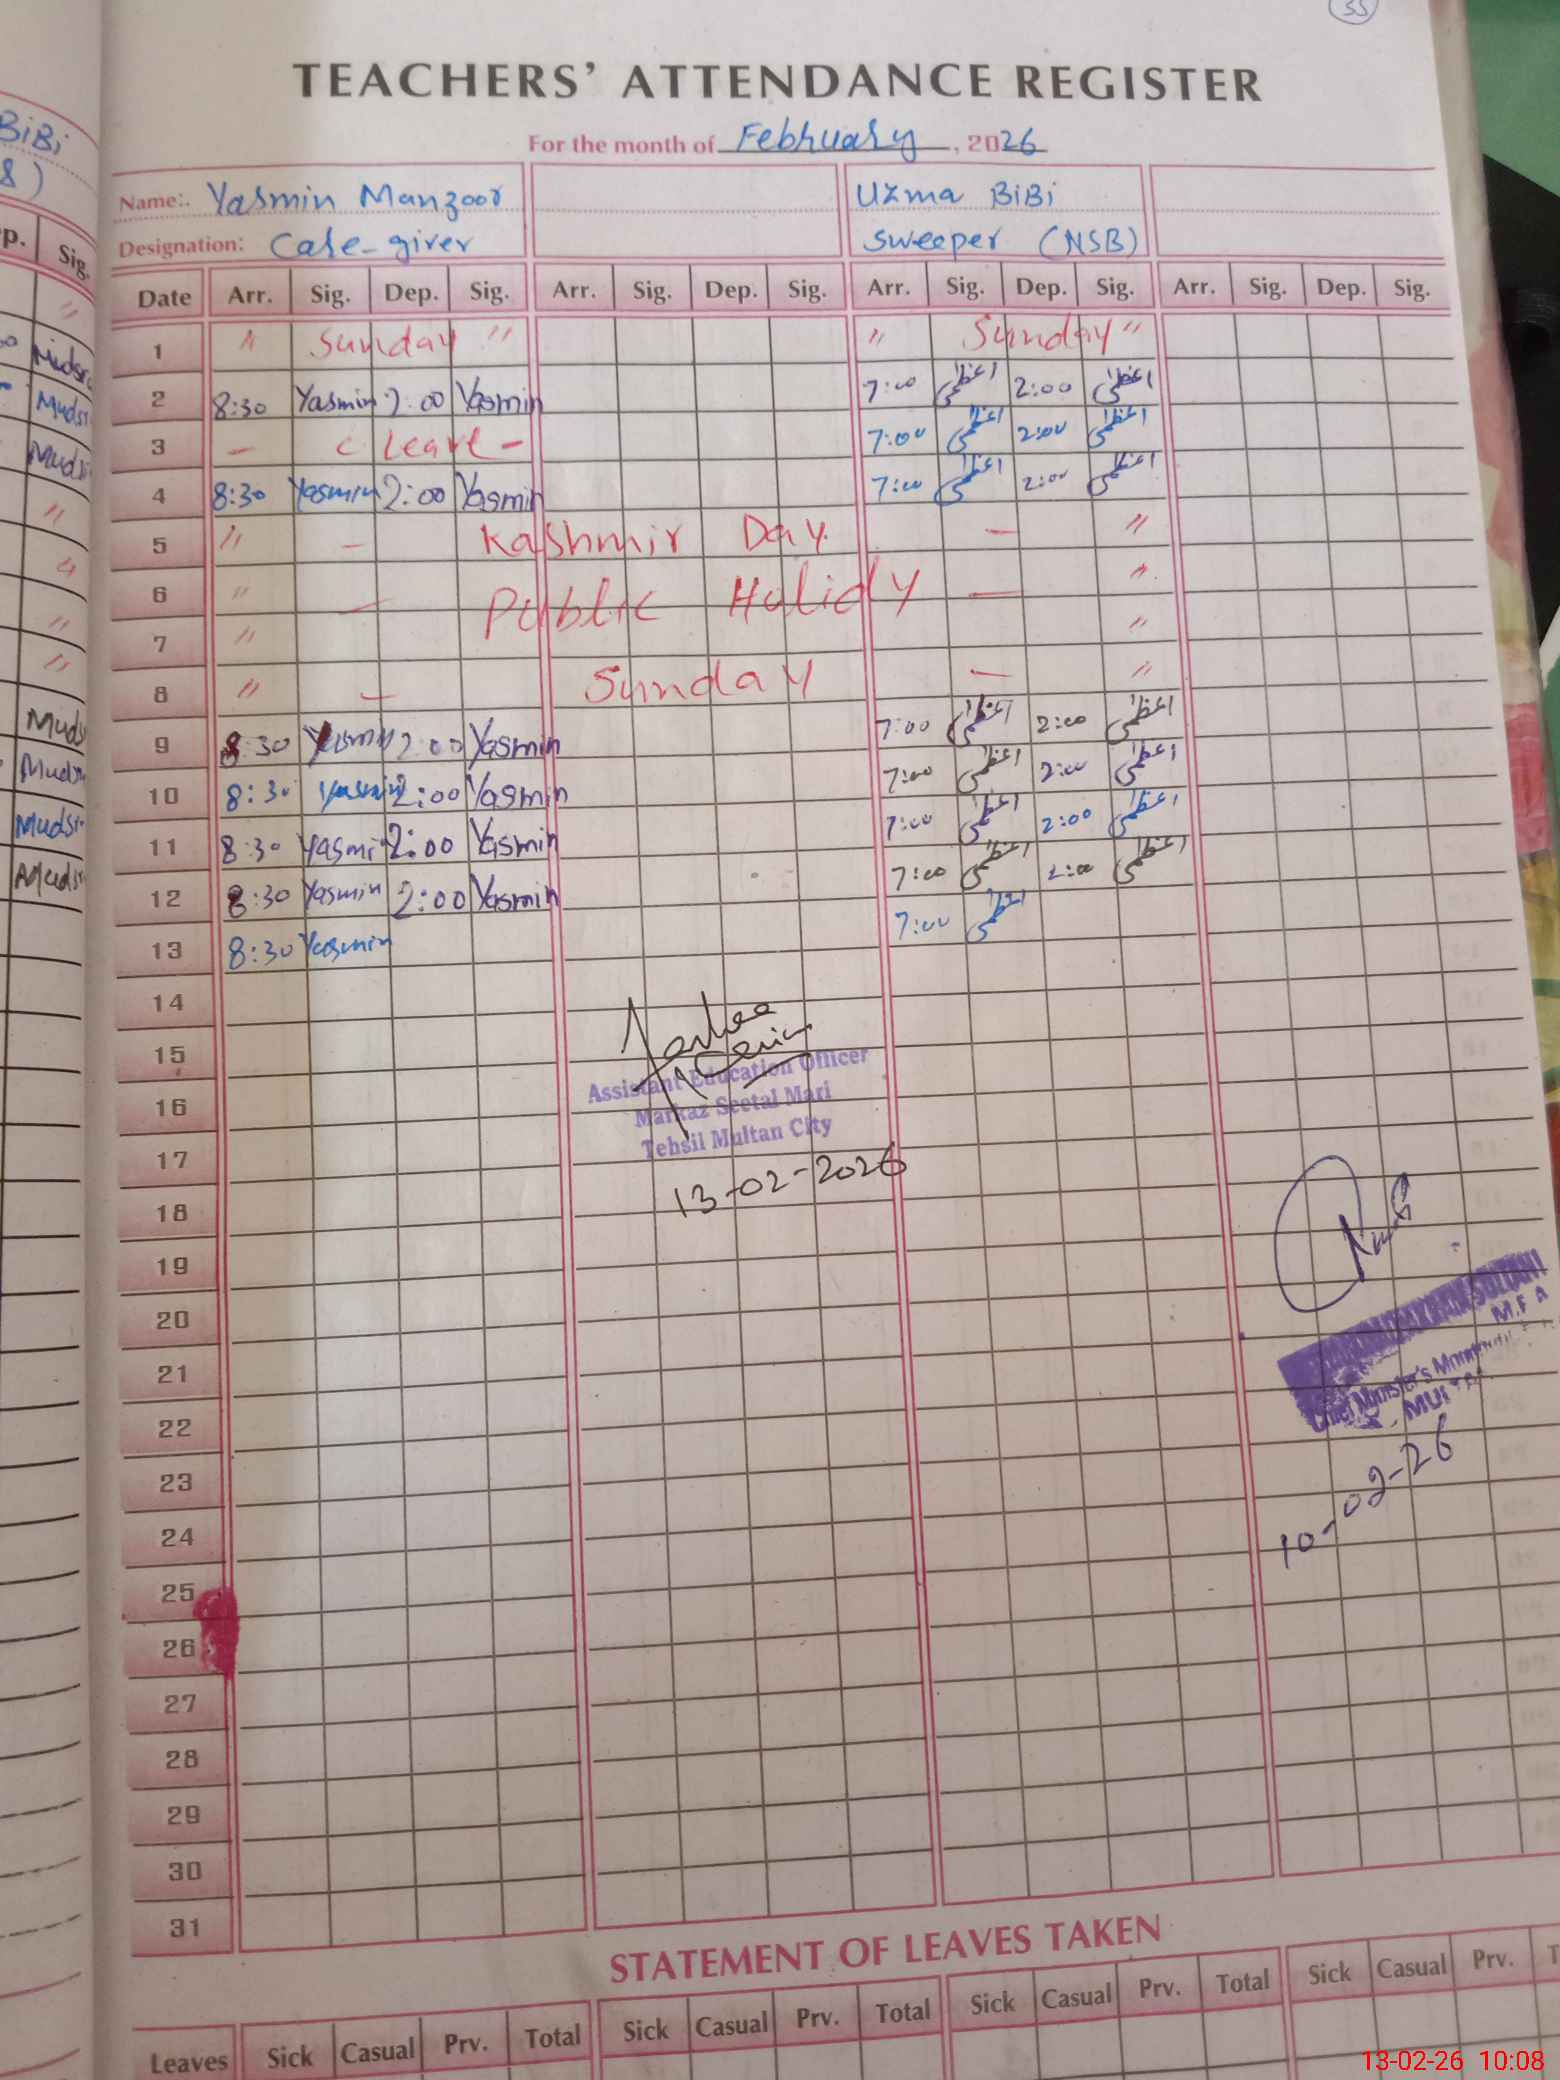 35
TEACHERS' ATTENDANCE REGISTER
For the month of February, 2026
Name:. Yasmin Manzoor Uzma BiBi
Designation: Care-giver Sweeper (NSB)
Date Arr. Sig. Dep. Sig. Arr. Sig. Dep. Sig. Arr. Sig. Dep. Sig. Arr. Sig. Dep. Sig.
1 " Sunday " " Sunday "
2 8:30 Yasmin 2:00 Yasmin 7:00 اعظمی 2:00 اعظمی
3 - C Leave - 7:00 اعظمی 2:00 اعظمی
4 8:30 Yasmin 2:00 Yasmin 7:00 اعظمی 2:00 اعظمی
5 " - Kashmir Day. - "
6 " - Public Holidy - "
7 " "
8 " - Sunday - "
9 8:30 Yasmin 2:00 Yasmin 7:00 اعظمی 2:00 اعظمی
10 8:30 Yasmin 2:00 Yasmin 7:00 اعظمی 2:00 اعظمی
11 8:30 Yasmin 2:00 Yasmin 7:00 اعظمی 2:00 اعظمی
12 8:30 Yasmin 2:00 Yasmin 7:00 اعظمی 2:00 اعظمی
13 8:30 Yasmin 7:00 اعظمی
14
15
Assistant Education Officer
16
Markaz Seetal Mari
Tehsil Multan City
17
13-02-2026
18
19
20
M.F.A
21
Chief Minister's
22
10-02-26
23
24
25
26
27
28
29
30
31
STATEMENT OF LEAVES TAKEN
Leaves Sick Casual Prv. Total Sick Casual Prv. Total Sick Casual Prv. Total Sick Casual Prv. T
BiBi
8)
p. Sig.
Mudsr
Mudsr
Mudsr
Muds
Mudsr
Mudsr
Mudsr
13-02-26 10:08